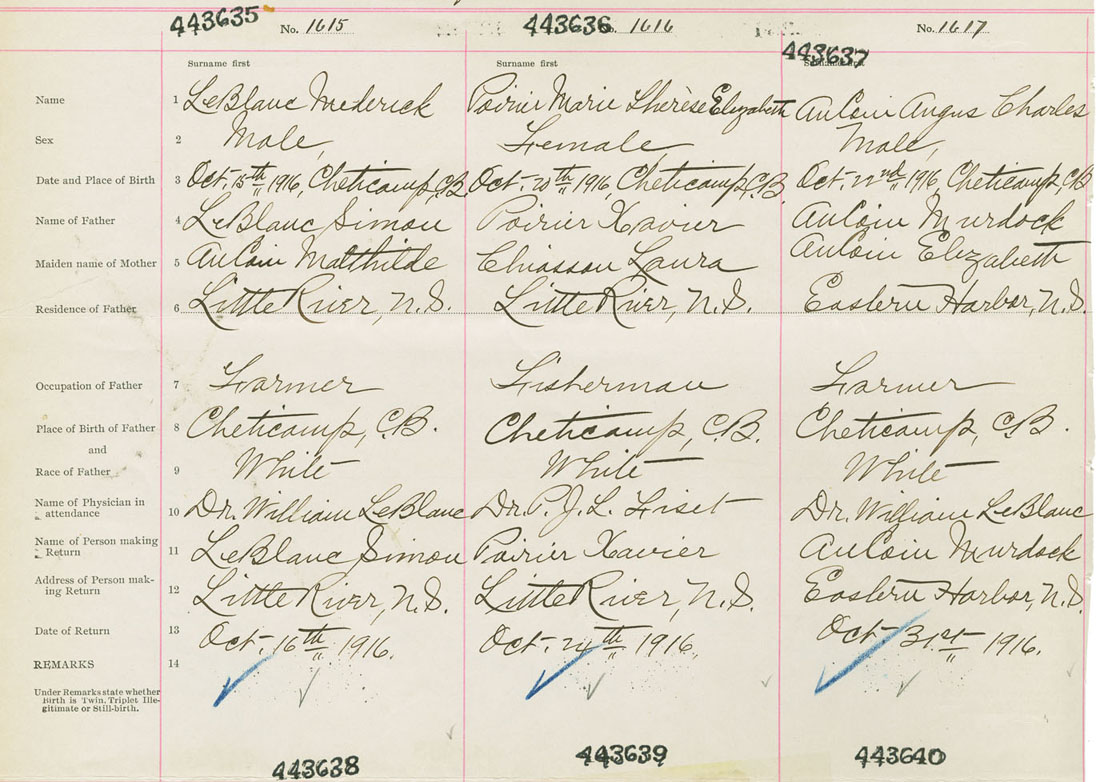 443635 No. 1615 443636 No. 1616 443637 No. 1617
Surname first Surname first Surname first
Name 1 LeBlanc Mederick Poirier Marie Thérèse Elizabeth AuCoin Angus Charles
Sex 2 Male, Female, Male,
Date and Place of Birth 3 Oct. 15th, 1916, Cheticamp, C.B. Oct. 20th, 1916, Cheticamp, C.B. Oct. 22nd, 1916, Cheticamp, C.B
Name of Father 4 LeBlanc Simon Poirier Xavier AuCoin Murdock
Maiden name of Mother 5 AuCoin Matthilde Chiasson Laura AuCoin Elizabeth
Residence of Father 6 Little River, N.S. Little River, N.S. Eastern Harbor, N.S.
Occupation of Father 7 Farmer Fisherman Farmer
Place of Birth of Father 8 Cheticamp, C.B. Cheticamp, C.B. Cheticamp, C.B.
and
Race of Father 9 White White White
Name of Physician in
attendance 10 Dr. William LeBlanc Dr. P.J.L. Fiset Dr. William LeBlanc
Name of Person making
Return 11 LeBlanc Simon Poirier Xavier AuCoin Murdock
Address of Person mak-
ing Return 12 Little River, N.S. Little River, N.S. Eastern Harbor, N.S.
Date of Return 13 Oct. 16th, 1916. Oct. 24th, 1916. Oct 31st 1916.
REMARKS 14
Under Remarks state whether
Birth is Twin, Triplet Ille-
gitimate or Still-birth.
443638 443639 443640